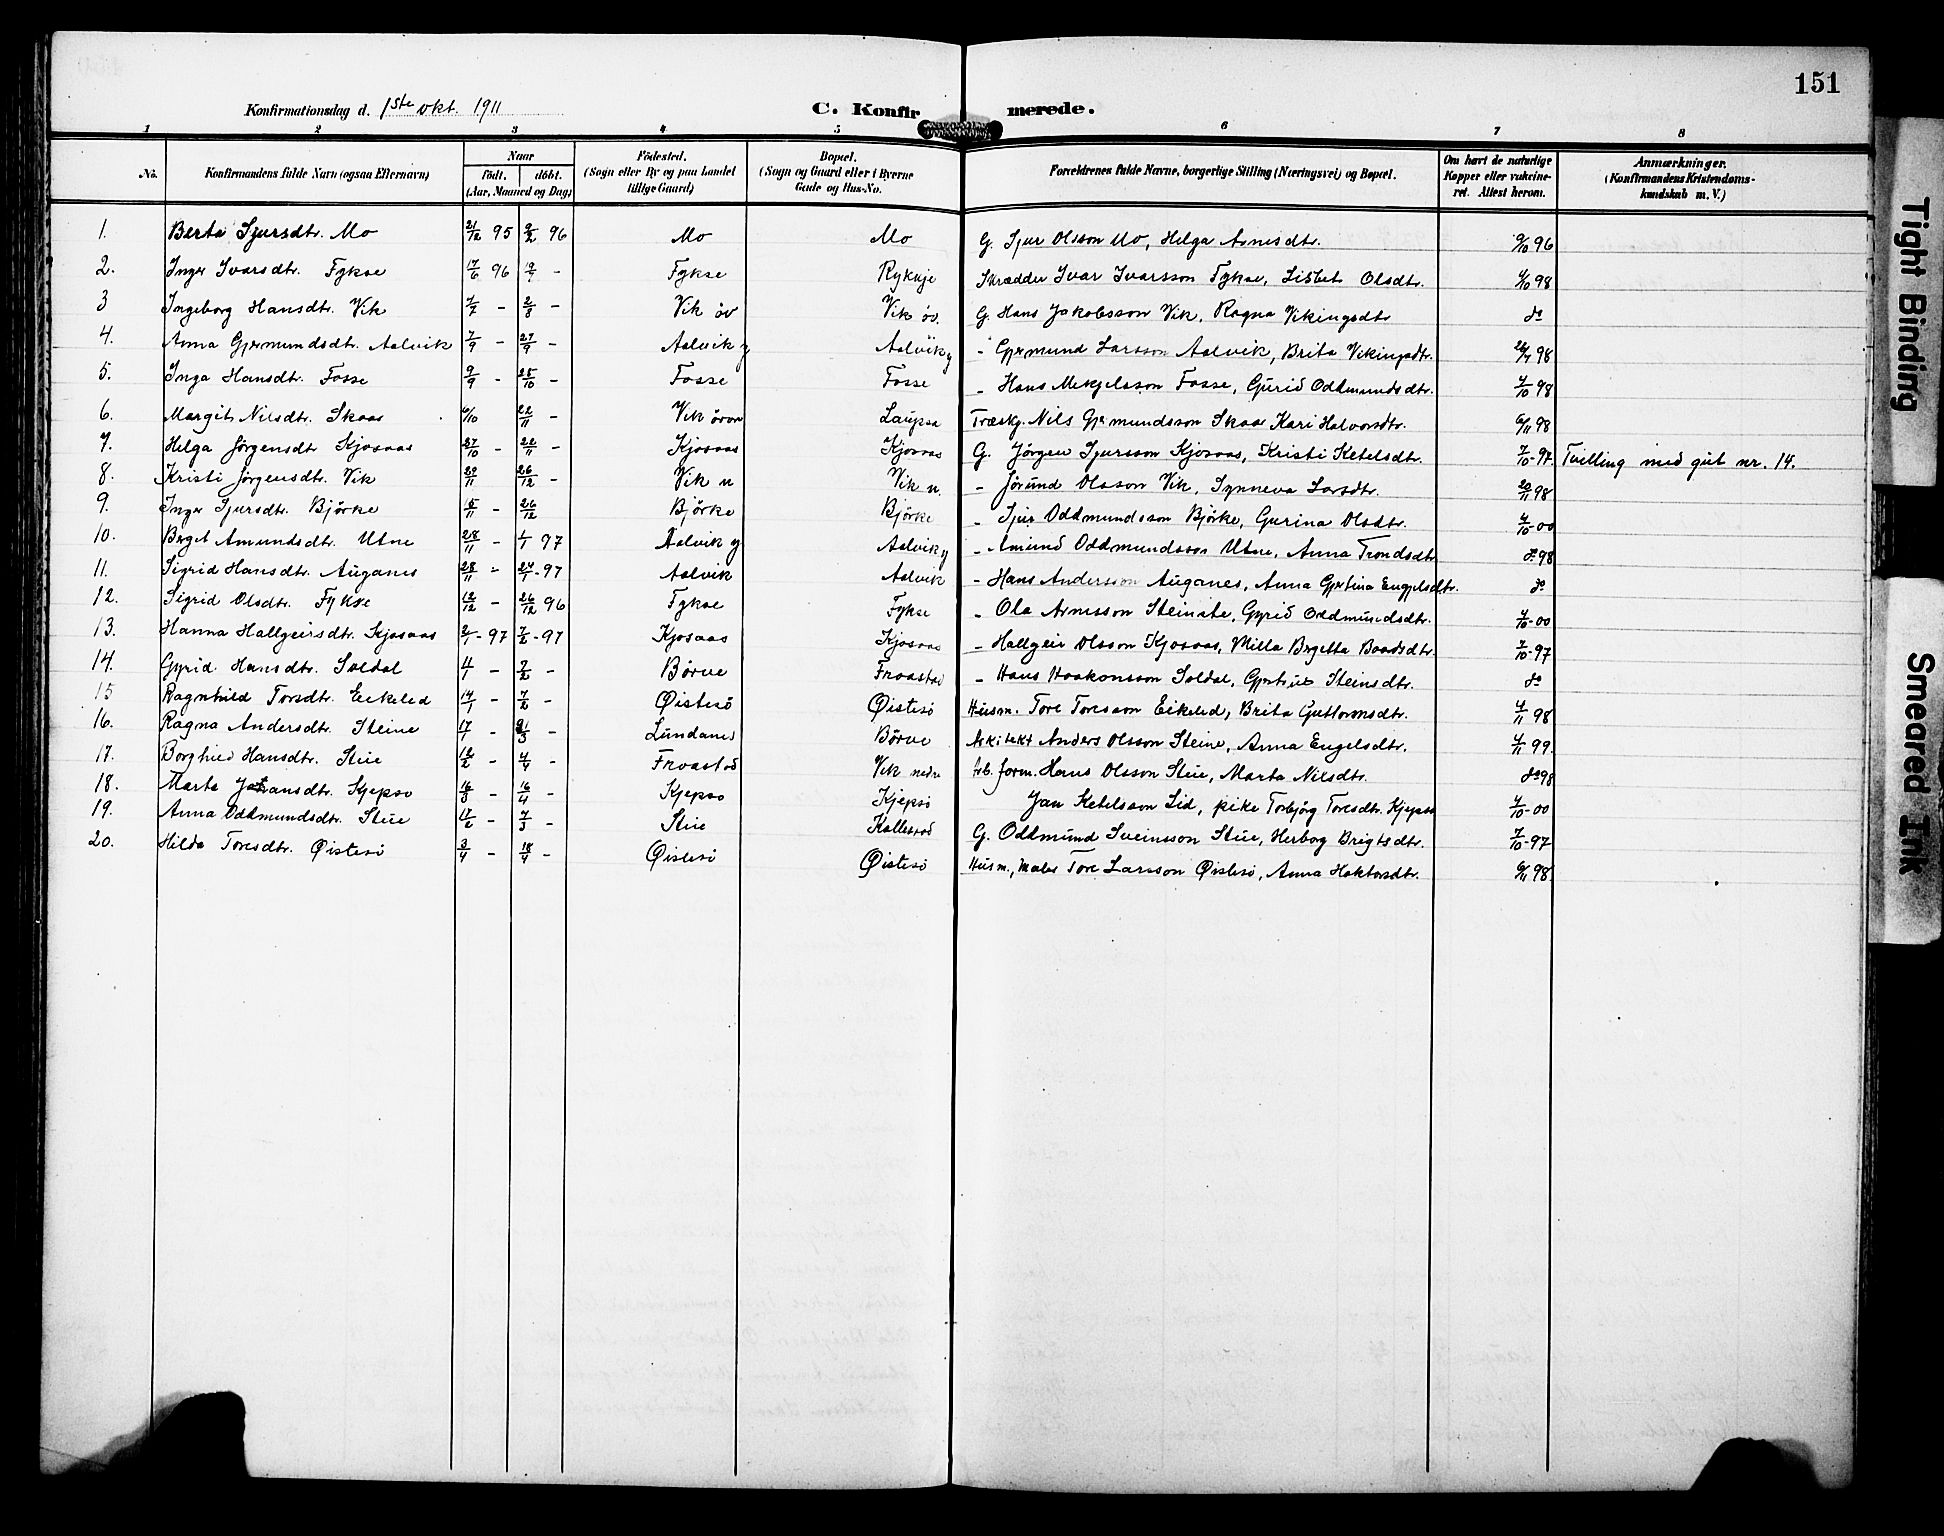 151
Konfirmationsdag d. 1ste okt. 1911 C. Konfirmerede.
1 2 3 4 5 6 7 8
No. Konfirmandens fulde Navn (ogsaa Efternavn) Naar født. døbt. (Aar, Maaned og Dag) Fødested. (Sogn eller By og paa Landet tillige Gaard) Bopæl. (Sogn og Gaard eller i Byerne Gade og Hus-No. Forældrenes fulde Navne, borgerlige Stilling (Næringsvei) og Bopæl. Om havt de naturlige Kopper eller vakcineret. Attest herom. Anmærkninger. (Konfirmandens Kristendomskundskab m. V.)
1. Berta Sjursdtr. Mo 21/12 95 9/2 96 Mo Mo G. Sjur Olsson Mo, Helga Arnesdtr. 9/10 96
2. Inger Ivarsdtr. Fykse 17/6 96 19/7 - Fykse Rykkje Skrædder Ivar Ivarsson Fykse, Lisbet Olsdtr. 4/10 98
3 Ingeborg Hansdtr. Vik 4/7 - 2/8 - Vik öv Vik öv. G. Hans Jakobsson Vik, Ragna Vikingsdtr do
4. Anna Gjermundsdtr. Aalvik 7/9 - 27/9 - Aalvik y Aalvik y - Gjermund Larsson Aalvik, Brita Vikingsdtr. 98
5. Inga Hansdtr. Fosse 9/9 - 25/10 - Fosse Fosse - Hans Mikjelsson Fosse, Gurid Oddmundsdtr. 4/10 98
6. Margit Nilsdtr. Skaar 22/11 - Vik övre Laupsa Træskj. Nils Gjermundsson Skaar Kari Halvorsdtr. 6/11 98
7. Helga Jörgensdtr Kjosaas 27/10 - 22/11 - Kjosaas Kjosaas G. Jörgen Sjursson Kjosaas, Kristi Ketelsdtr. 7/10-97 Tvilling med gut nr. 14.
8. Kristi Jörgensdtr. Vik 26/12 - Vik n Vik n. - Jörund Olsson Vik, Synneva Larsdtr. 20/11 98
9. Inger Sjursdtr. Björke 15/11 - 26/12 Björke Björke - Sjur Oddmundsson Björke, Gurina Olsdtr. 4/10-00
10. Berget Amundsdtr. Utne 28/11 - 1/1 97 Aalvik y Aalvik y - Amund Oddmundsson Utne, Anna Trondsdtr do 98
11. Sigrid Hansdtr. Auganes 28/11 - 24/1-97 Aalvik Aalvik - Hans Andersson Auganes, Anna Gjertina Engjelsdtr. do
12. Sigrid Olsdtr. Fykse 12/12 - 26/12 96 Fykse Fykse - Ola Arnesson Steinste, Gyrid Oddmundsdtr. 4/10-00
13. Hanna Hallgeirsdtr. Kjosaas 2/1-97 7/2-97 Kjosaas Kjosaas - Hallgeir Olsson Kjosaas, Milla Brgetta Baardsdtr. 7/10-97
14. Gyrid Hansdtr. Soldal 4/1 - 7/2 - Börve Froastad - Hans Haakonsson Soldal, Gjertrue Steinsdtr. do
15 Ragnhild Torsdtr. Eikeled 14/1 - 7/2 - Øistesö Øistesö Husm. Tore Toresson Eikeled, Brita Guttormsdtr. 4/11 98
16. Ragna Andersdtr. Steine 17/1 - 21/3 - Lundanes Börve Arkitekt Anders Olsson Steine, Anna Engelsdtr. 4/11 99.
17. Borghild Hansdtr. Stue 12/2 - 4/4 - Froastad Vik nedre Arb. form. Hans Olsson Stue, Marta Nilsdtr. do 98
18. Marta Johansdtr. Kjepso 16/3 - 16/4 - Kjepso Kjepsö Jan Ketelsson Lid, pike Torbjörg Toresdtr. Kjepso 4/10-00
19. Anna Oddmundsdtr. Stue 17/2 - 7/3 - Stue Kallestad G. Oddmund Sveinsson Stue, Herborg Brigtsdtr. 7/10-97
20. Hilda Toresdtr. Øistesö 3/4 - 18/4 - Øistesö Øistesö Husm., maler Tore Larsson Øistesö, Anna Haktorsdtr. 6/11 98.
Tight Binding
Smeared Ink